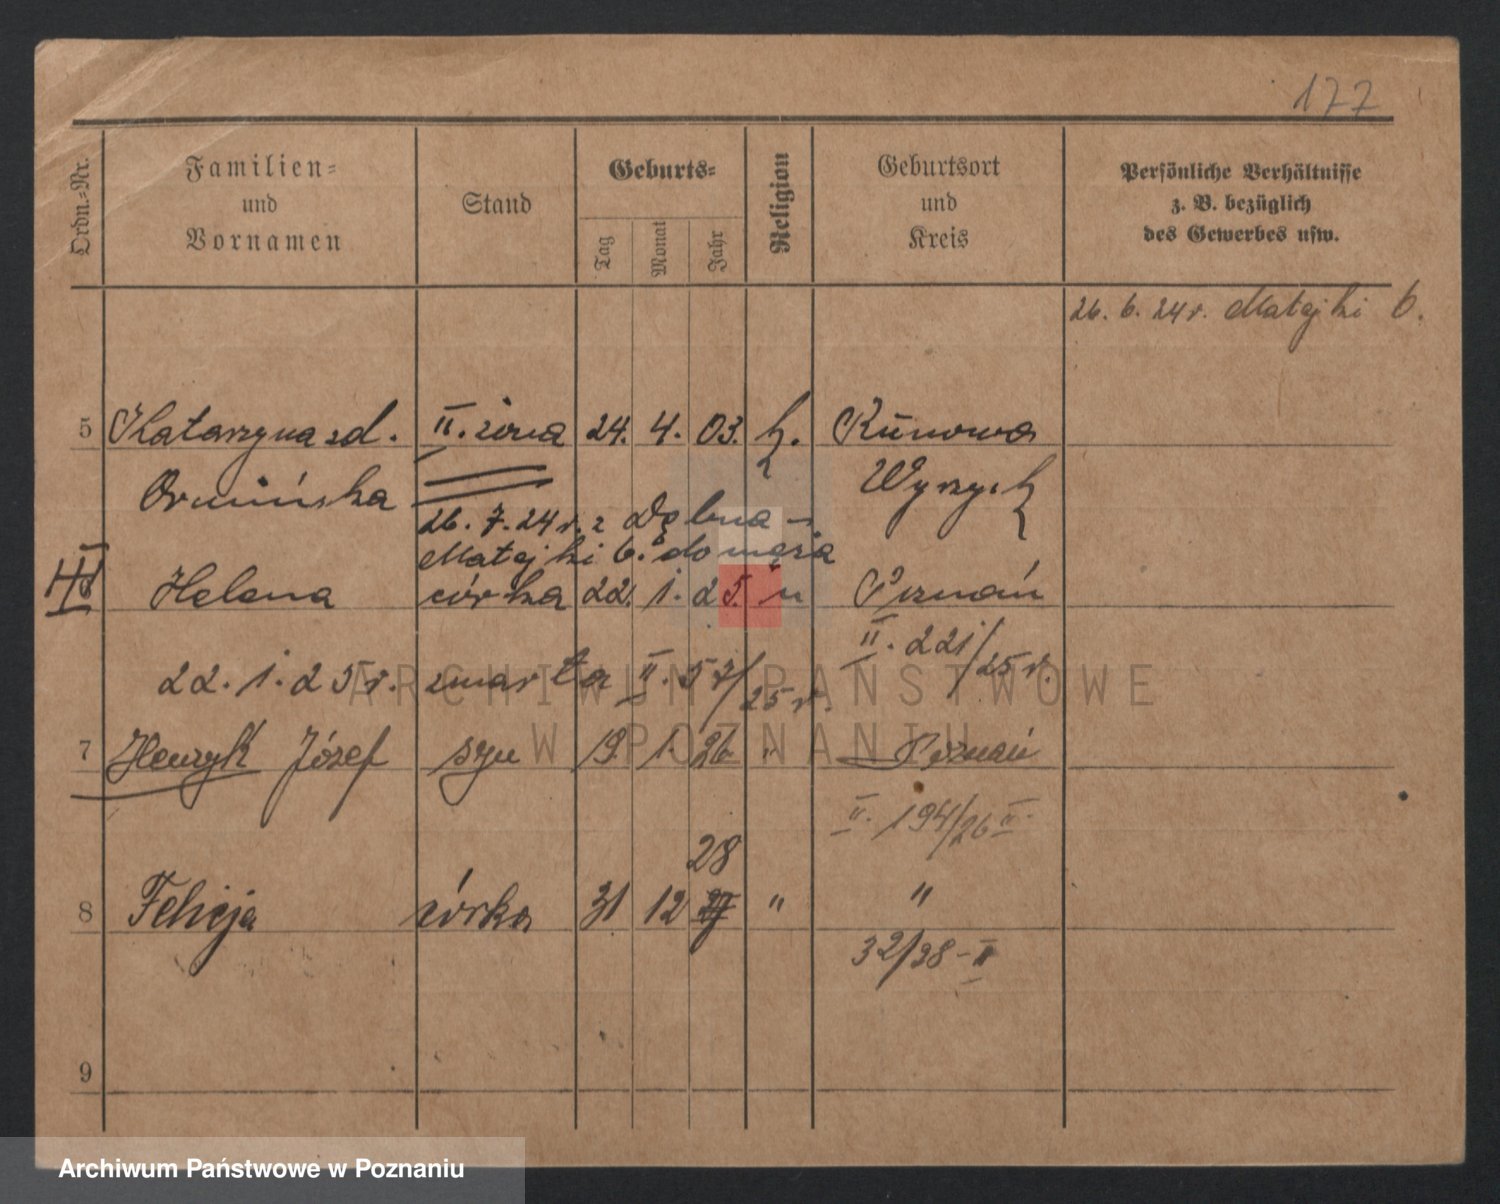 177
Ordn.=Nr.
Familien=
und
Vornamen
Stand
Geburts=
Tag
Monat
Jahr
Religion
Geburtsort
und
Kreis
Persönliche Verhältnisse
z. B. bezüglich
des Gewerbes usw.
26. 6. 24 r. Matejki 6.
5 Katarzyna zd. II. żona 24. 4. 03. k. Kunowo
Ormińska Wyrzysk
26. 7. 24 r. z Dębna –
Matejki 6. do męża
III Helena córka 22. 1. 25. n Poznań
II. 221/25 r.
22. 1. 25 r. zmarła II. 57/25 r.
7 Henryk Józef syn 19. 1. 26 " Poznań
II. 194/26 II.
28
8 Felicja córka 31 12 27 " "
32/38 - II
9
ARCHIWUM PAŃSTWOWE
W POZNANIU
Archiwum Państwowe w Poznaniu